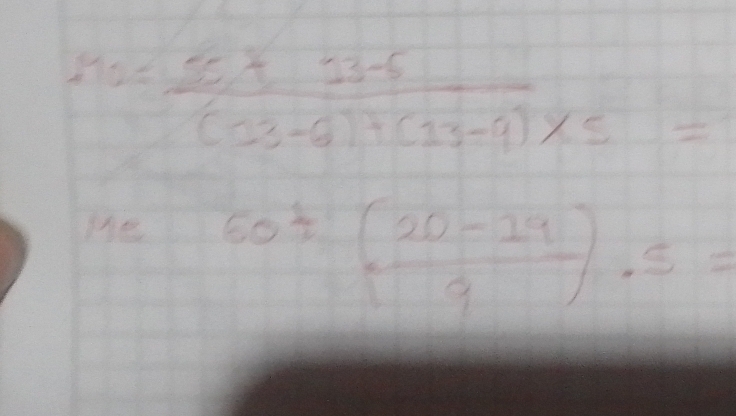 Mo = 55 + 13-6
(13-6)+(13-9) × 5 =
Me 60 + (20-19
9) . 5 =